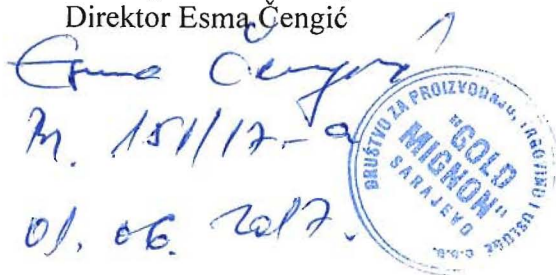 Direktor Esma Čengić
Esma Čengić
Br. 151/17-a
01. 06. 2017.
DRUŠTVO ZA PROIZVODNJU, TRGOVINU I USLUGE d.o.o.
"GOLD
MIGNON"
SARAJEVO